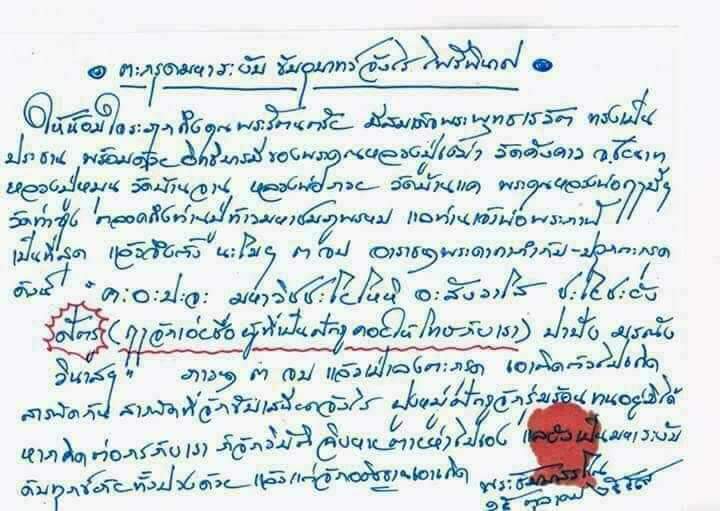 ตะกรุดมหาระงับ ซับอุบาทว์จังไร ไพรีพินาศ
ให้น้อมใจระลึกถึงคุณพระรัตนตรัย มีสมเด็จพระพุทธ ทรงเป็น
ประธาน พร้อมด้วย อิทธิบารมีของพระคุณหลวงปู่เฒ่า วัดค้างคาว
หลวงปู่หมุน วัดบ้านจาน หลวงพ่อกวย วัดบ้านแค พระคุณหลวงพ่อฤาษีฯ
วัดท่าซุง ตลอดถึงท่านปู่ท้าวมหาชมภูพรหม แลท่านเจ้าพ่อพระกาฬ
เป็นที่สุด แล้วจึงตั้ง นะโมฯ ๓ จบ อาราธนาพระคาถากำกับ-ปลุกตะกรุด
ดังนี้ " คะ อะ ปะ จะ มหาวิชชะโยโหนี อะสังวิสุ ชะโยชะยัง
ศัตรู (ฤๅจักเอ่ยชื่อ ผู้ที่เป็นศัตรูคอยให้โทษกับเรา) ปาปัง มรณัง
วินาสฯ" ภาวนา ๓ จบ แล้วเป่าลงตะกรุด เอาติดตัวไปเถิด
สารพัดกัน สารพัดที่จักขับเสนียดจังไร ฝูงหมู่ศัตรูจักรุ่มร้อนทนอยู่มิได้
หากคิดต่อกรกับเรา ก็จักวิบัติฉิบหายตายห่าไปเอง แลยังเป็นมหาระงับ
ดับทุกข์ภัยทั้งปวงด้วย แล้วแต่จักอธิษฐานเอาเถิด
๑๕ ตุลาคม ๒๕๕๗